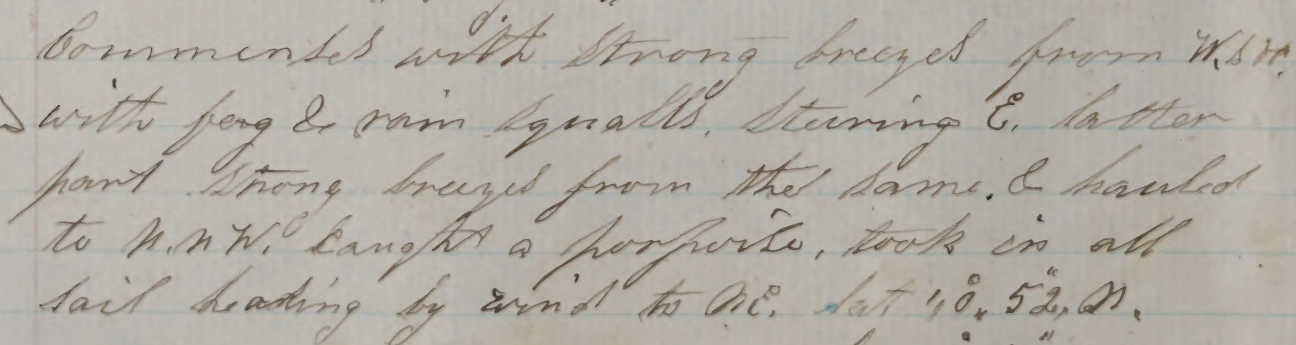 Commenses with strong breezes from W.S.W.
with forg & rain squalls. Stearing E. latter
part strong breezes from the same. & hauled
to N.N.W. Caught a porpoise, took in all
sail heading by wind to NE. Lat 52, N.